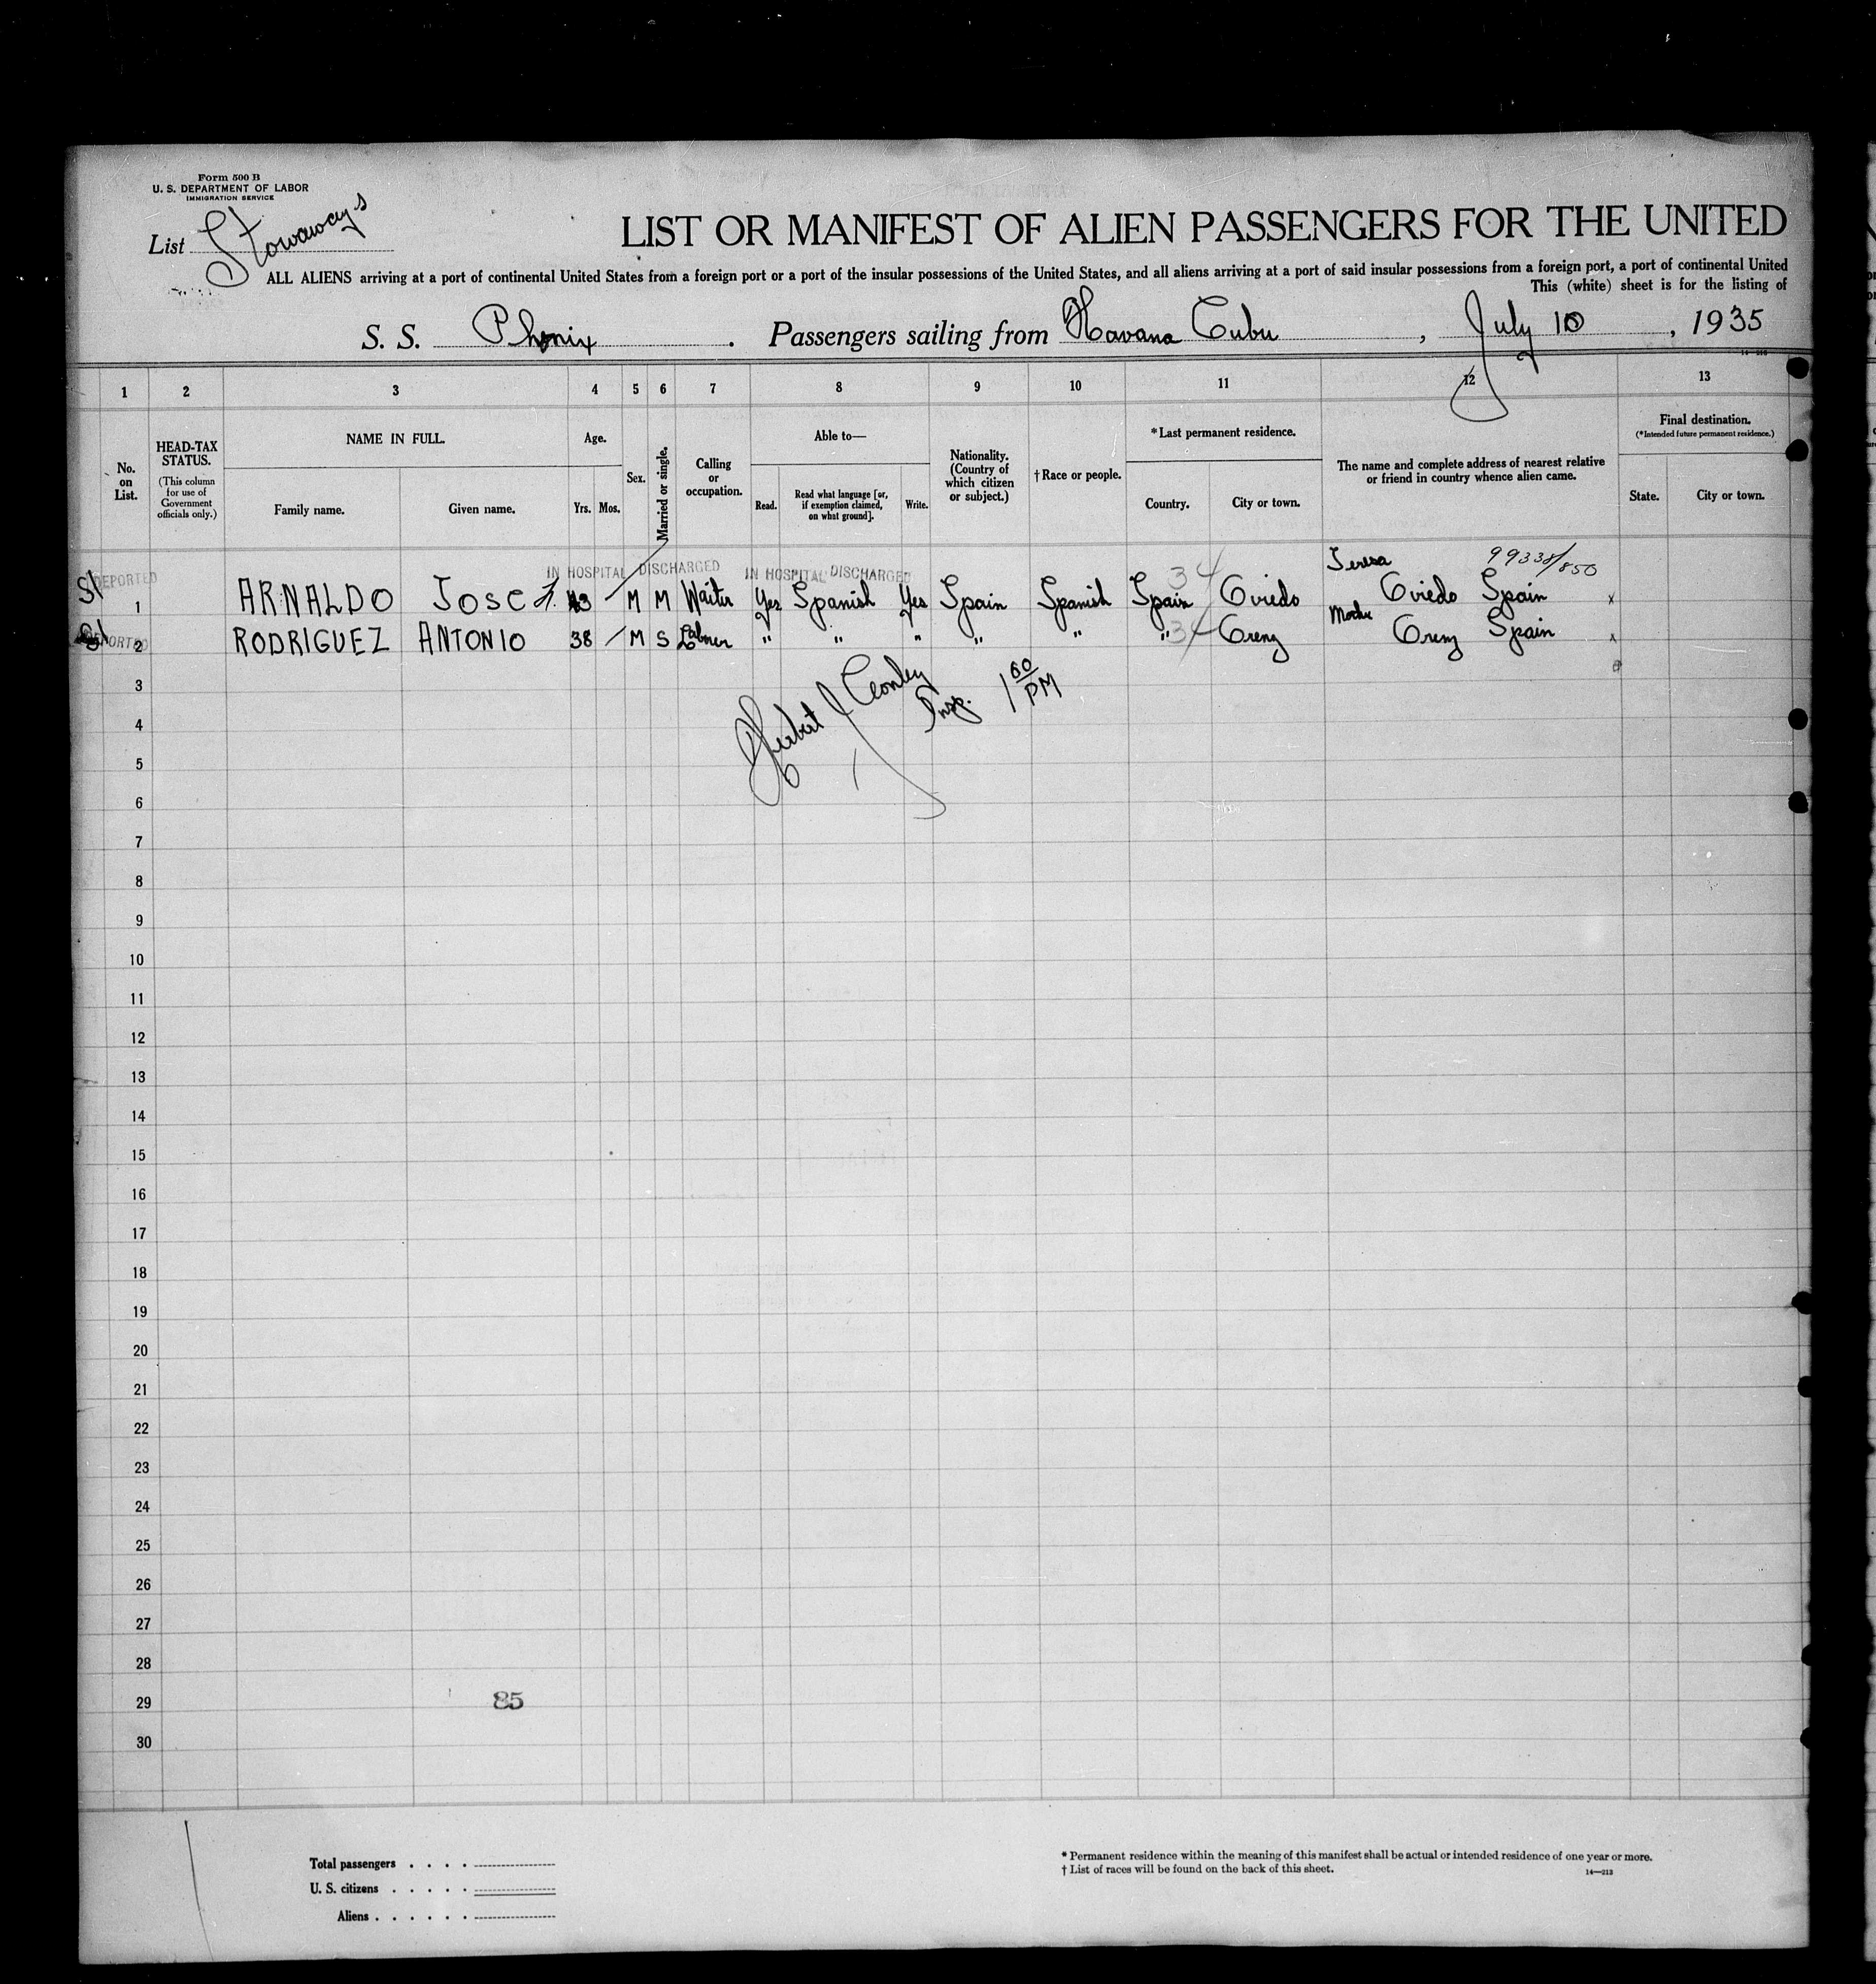 Form 500 B
U. S. DEPARTMENT OF LABOR
IMMIGRATION SERVICE
List Stowaways
LIST OR MANIFEST OF ALIEN PASSENGERS FOR THE UNITED
ALL ALIENS arriving at a port of continental United States from a foreign port or a port of the insular possessions of the United States, and all aliens arriving at a port of said insular possessions from a foreign port, a port of continental United
This (white) sheet is for the listing of
S. S. Phonix. Passengers sailing from Havana Cuba, July 10, 1935
1 2 3 4 5 6 7 8 9 10 11 12 13
No. on List.
HEAD-TAX STATUS.
(This column for use of Government officials only.)
NAME IN FULL.
Family name. Given name.
Age.
Yrs. Mos.
Sex.
Married or single.
Calling or occupation.
Able to—
Read. Read what language [or, if exemption claimed, on what ground]. Write.
Nationality. (Country of which citizen or subject.)
† Race or people.
* Last permanent residence.
Country. City or town.
The name and complete address of nearest relative or friend in country whence alien came.
Final destination.
(* Intended future permanent residence.)
State. City or town.
IN HOSPITAL DISCHARGED IN HOSPITAL DISCHARGED 34 Teresa 99338/850
DEPORTED 1 ARNALDO JOSE 43 M M Waiter Yes Spanish Yes Spain Spanish Spain Oviedo Oviedo Spain x
DEPORTED 2 RODRIGUEZ ANTONIO 38 M S Labner " " " " " " 34 Orenz Orenz Spain x
3
Herbert J Conley
Insp. 1 00 PM
4
5
6
7
8
9
10
11
12
13
14
15
16
17
18
19
20
21
22
23
24
25
26
27
28
29 85
30
Total passengers . . . .
U. S. citizens . . . . .
Aliens . . . . . .
* Permanent residence within the meaning of this manifest shall be actual or intended residence of one year or more.
† List of races will be found on the back of this sheet. 14—213